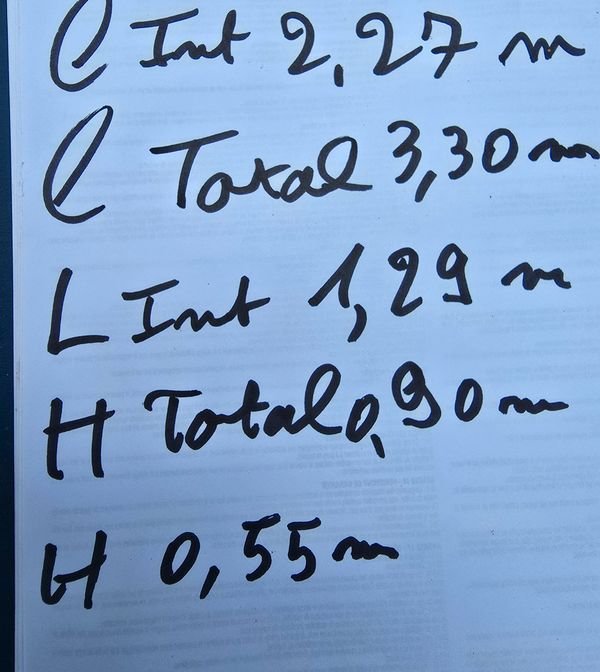 C Int 2,27 m
C Total 3,30 m
L Int 1,29 m
H Total 0,90 m
H 0,55 m